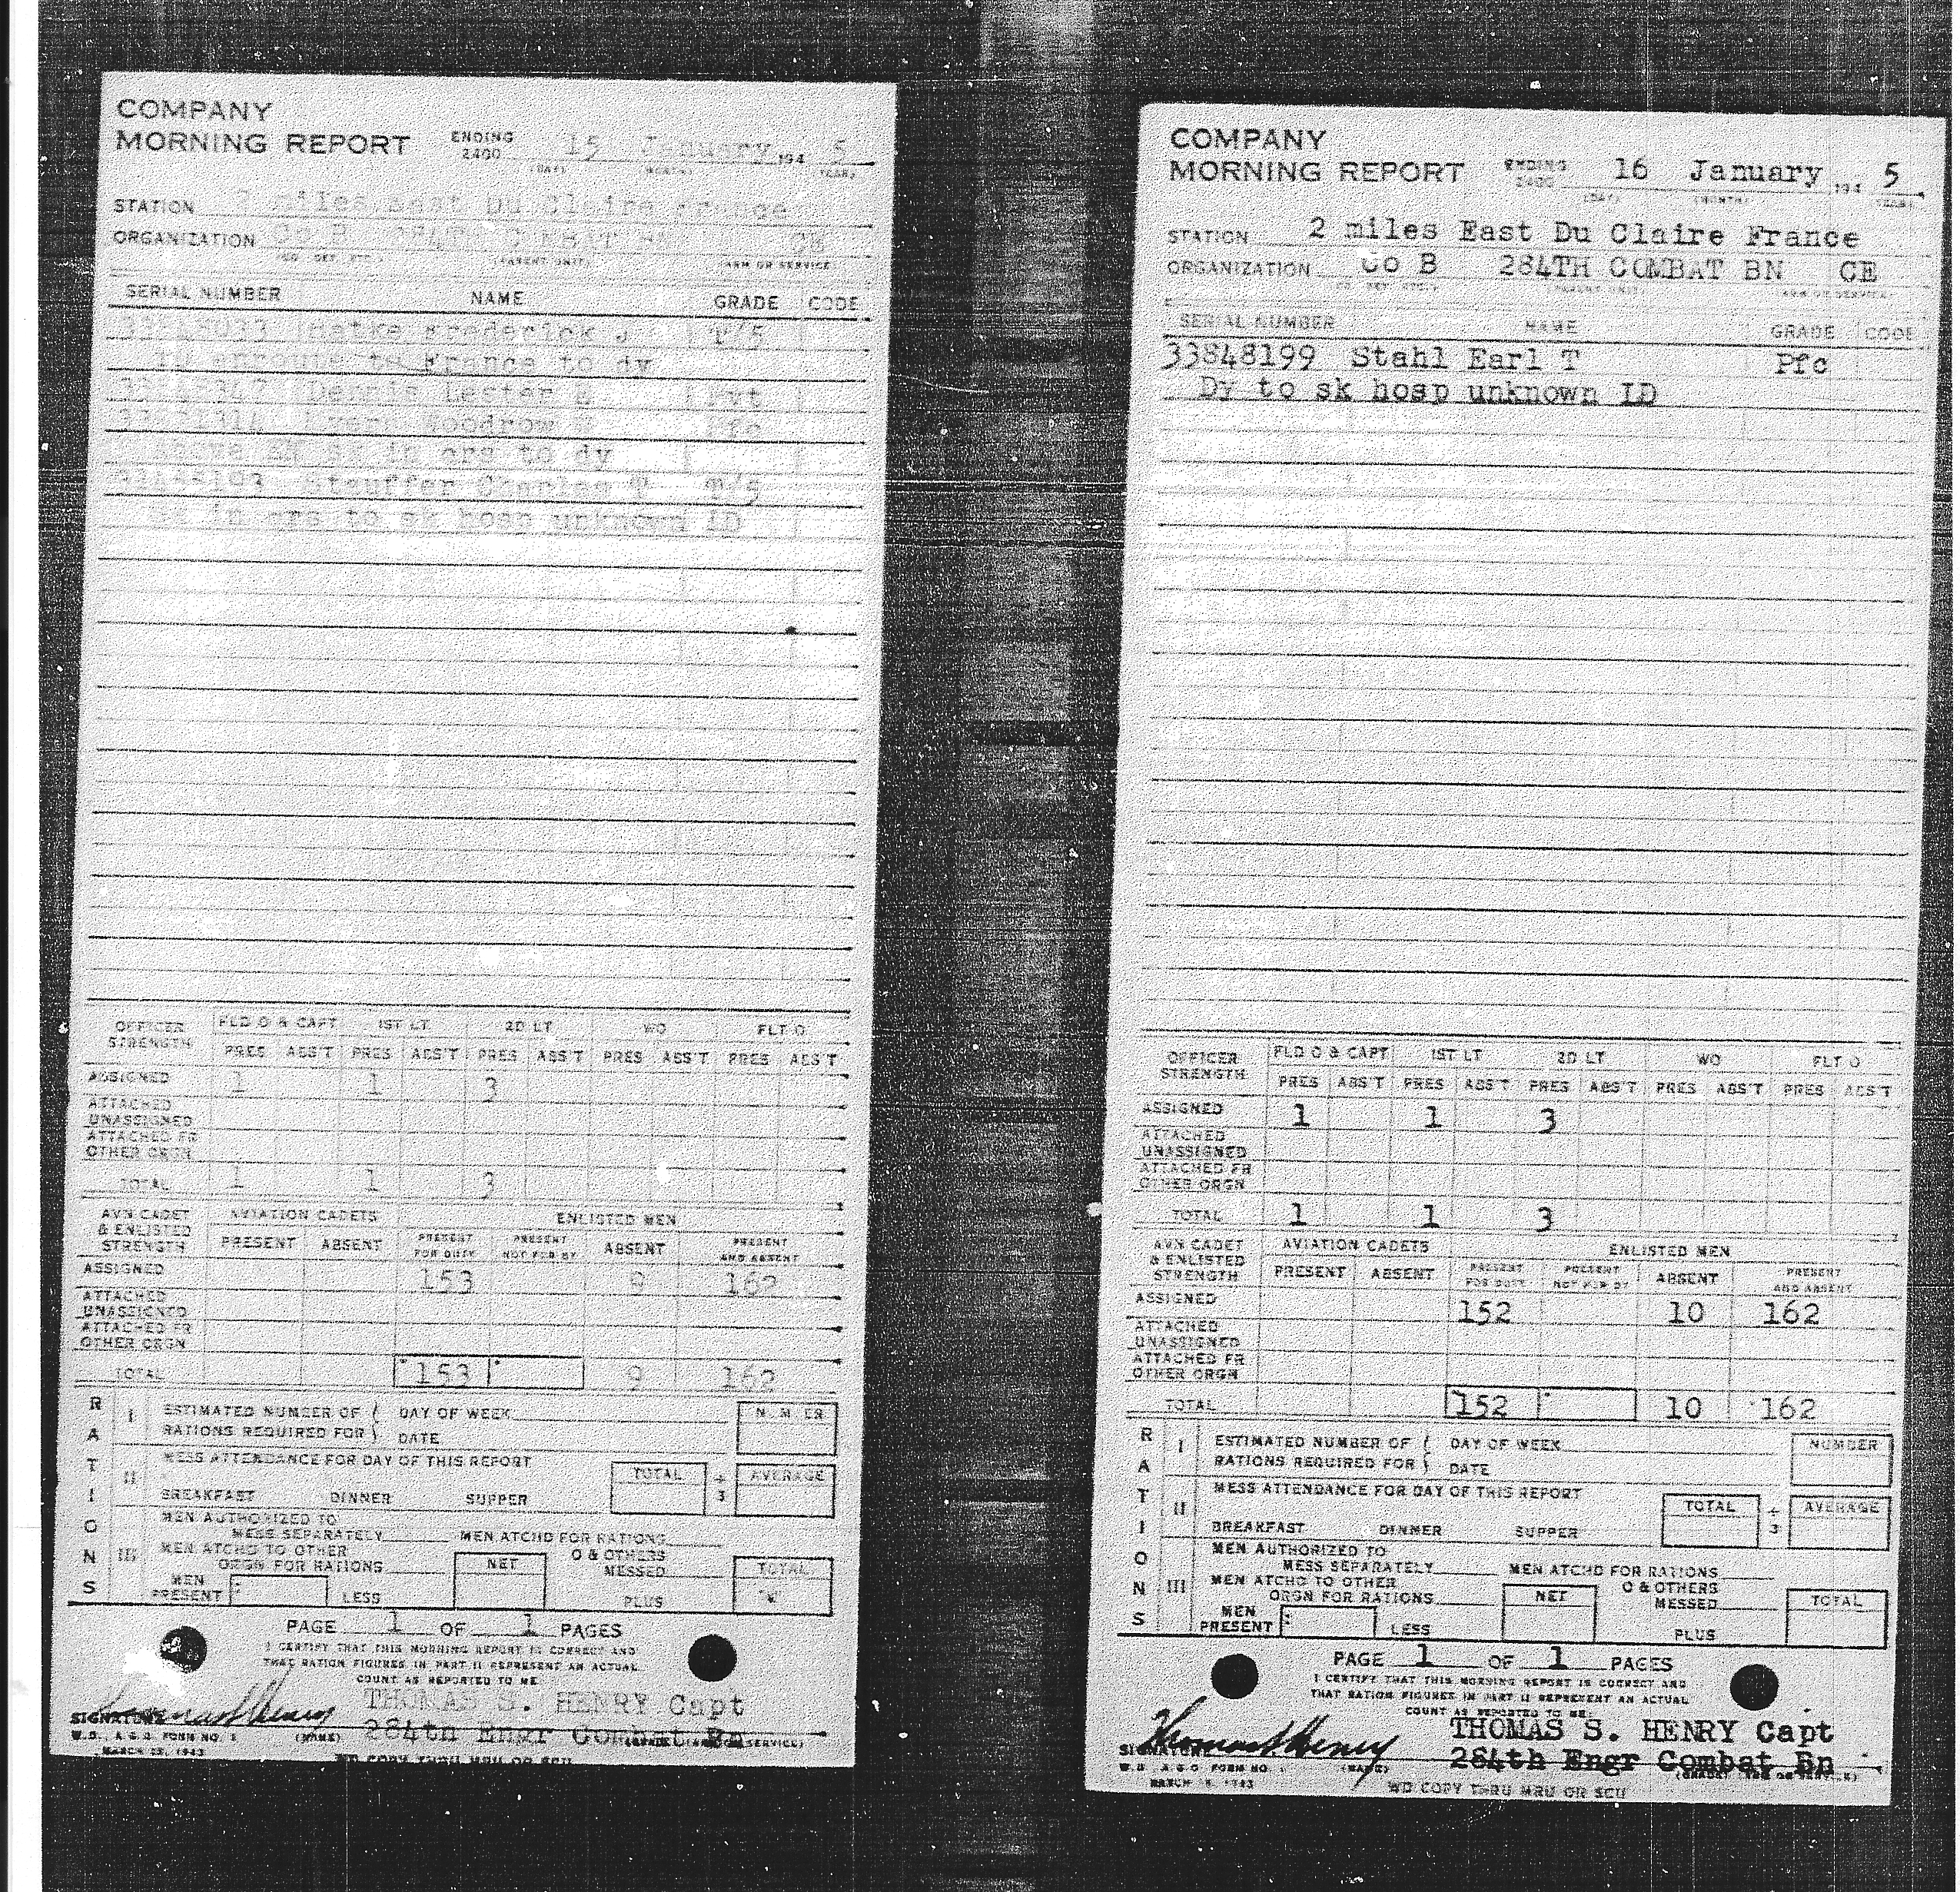 COMPANY
MORNING REPORT ENDING 2400 15 January 194 5
(DAY) (MONTH) (YEAR)
STATION 2 miles East Du Claire France
ORGANIZATION Co B 284TH COMBAT BN CE
(CO DET ETC.) (PARENT UNIT) (ARM OR SERVICE)
SERIAL NUMBER NAME GRADE CODE
33848033 Frederick J T/5
enroute to France to dy
Dennis Lester Pvt
Woodrow Pfc
Above EM sk in qrs to dy
Stauffer Charles T T/5
Sk in qrs to sk hosp unknown LD
OFFICER STRENGTH FLD O & CAPT 1ST LT 2D LT WO FLT O
PRES ABS'T PRES ABS'T PRES ABS'T PRES ABS'T PRES ABS'T
ASSIGNED 1 1 3
ATTACHED UNASSIGNED
ATTACHED FR OTHER ORGN
TOTAL 1 1 3
AVN CADET & ENLISTED STRENGTH AVIATION CADETS ENLISTED MEN
PRESENT ABSENT PRESENT FOR DUTY PRESENT NOT FOR DY ABSENT PRESENT AND ABSENT
ASSIGNED 153 9 162
ATTACHED UNASSIGNED
ATTACHED FR OTHER ORGN
TOTAL 153 9 162
RATIONS
I ESTIMATED NUMBER OF RATIONS REQUIRED FOR DAY OF WEEK DATE NUMBER
II MESS ATTENDANCE FOR DAY OF THIS REPORT TOTAL ÷ 3 AVERAGE
BREAKFAST DINNER SUPPER
III MEN AUTHORIZED TO MESS SEPARATELY MEN ATCHD FOR RATIONS
MEN ATCHD TO OTHER ORGN FOR RATIONS NET O & OTHERS MESSED TOTAL
MEN PRESENT LESS PLUS
PAGE 1 OF 1 PAGES
I CERTIFY THAT THIS MORNING REPORT IS CORRECT AND
THAT RATION FIGURES IN PART II REPRESENT AN ACTUAL
COUNT AS REPORTED TO ME
Thomas S Henry THOMAS S. HENRY Capt
SIGNATURE 284th Engr Combat Bn
W.D., A.G.O. FORM NO. 1 (NAME) (GRADE) (ARM OR SERVICE)
MARCH 1943
WD COPY THRU MRU OR SCU
COMPANY
MORNING REPORT ENDING 2400 16 January 194 5
(DAY) (MONTH) (YEAR)
STATION 2 miles East Du Claire France
ORGANIZATION Co B 284TH COMBAT BN CE
(CO DET ETC.) (PARENT UNIT) (ARM OR SERVICE)
SERIAL NUMBER NAME GRADE CODE
33848199 Stahl Earl T Pfc
Dy to sk hosp unknown LD
OFFICER STRENGTH FLD O & CAPT 1ST LT 2D LT WO FLT O
PRES ABS'T PRES ABS'T PRES ABS'T PRES ABS'T PRES ABS'T
ASSIGNED 1 1 3
ATTACHED UNASSIGNED
ATTACHED FR OTHER ORGN
TOTAL 1 1 3
AVN CADET & ENLISTED STRENGTH AVIATION CADETS ENLISTED MEN
PRESENT ABSENT PRESENT FOR DUTY PRESENT NOT FOR DY ABSENT PRESENT AND ABSENT
ASSIGNED 152 10 162
ATTACHED UNASSIGNED
ATTACHED FR OTHER ORGN
TOTAL 152 10 162
RATIONS
I ESTIMATED NUMBER OF RATIONS REQUIRED FOR DAY OF WEEK DATE NUMBER
II MESS ATTENDANCE FOR DAY OF THIS REPORT TOTAL ÷ 3 AVERAGE
BREAKFAST DINNER SUPPER
III MEN AUTHORIZED TO MESS SEPARATELY MEN ATCHD FOR RATIONS
MEN ATCHD TO OTHER ORGN FOR RATIONS NET O & OTHERS MESSED TOTAL
MEN PRESENT LESS PLUS
PAGE 1 OF 1 PAGES
I CERTIFY THAT THIS MORNING REPORT IS CORRECT AND
THAT RATION FIGURES IN PART II REPRESENT AN ACTUAL
COUNT AS REPORTED TO ME
Thomas S Henry THOMAS S. HENRY Capt
SIGNATURE 284th Engr Combat Bn
W.D. A.G.O. FORM NO. 1 (NAME) (GRADE) (ARM OR SERVICE)
MARCH 1943
WD COPY THRU MRU OR SCU